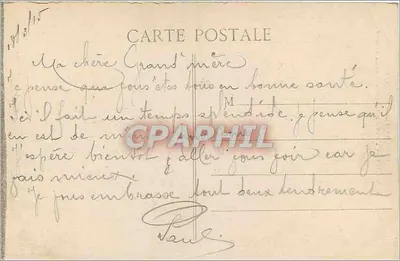 18/3/15
CARTE POSTALE
Ma chère Grand'mère
Je pense que vous êtes tous en bonne santé.
Ici il fait un temps splendide, je pense qu'il
M
en est de même
CPAPHIL
J'espère bientôt aller vous voir car je
vais mieux
Je vous embrasse tout deux tendrement
Paul